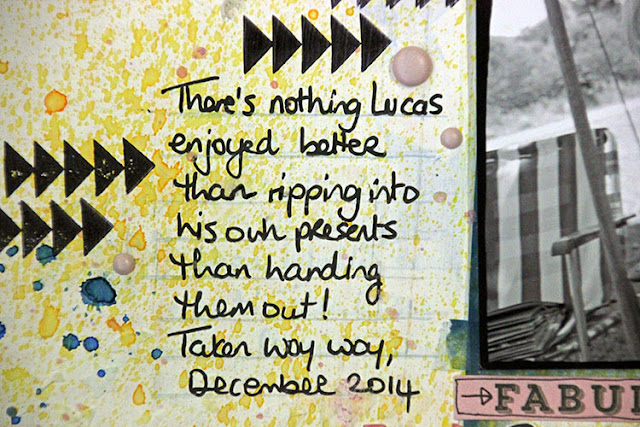 There's nothing Lucas
enjoyed better
than ripping into
his own presents
than handing
them out!
Taken way way,
December 2014
FABU